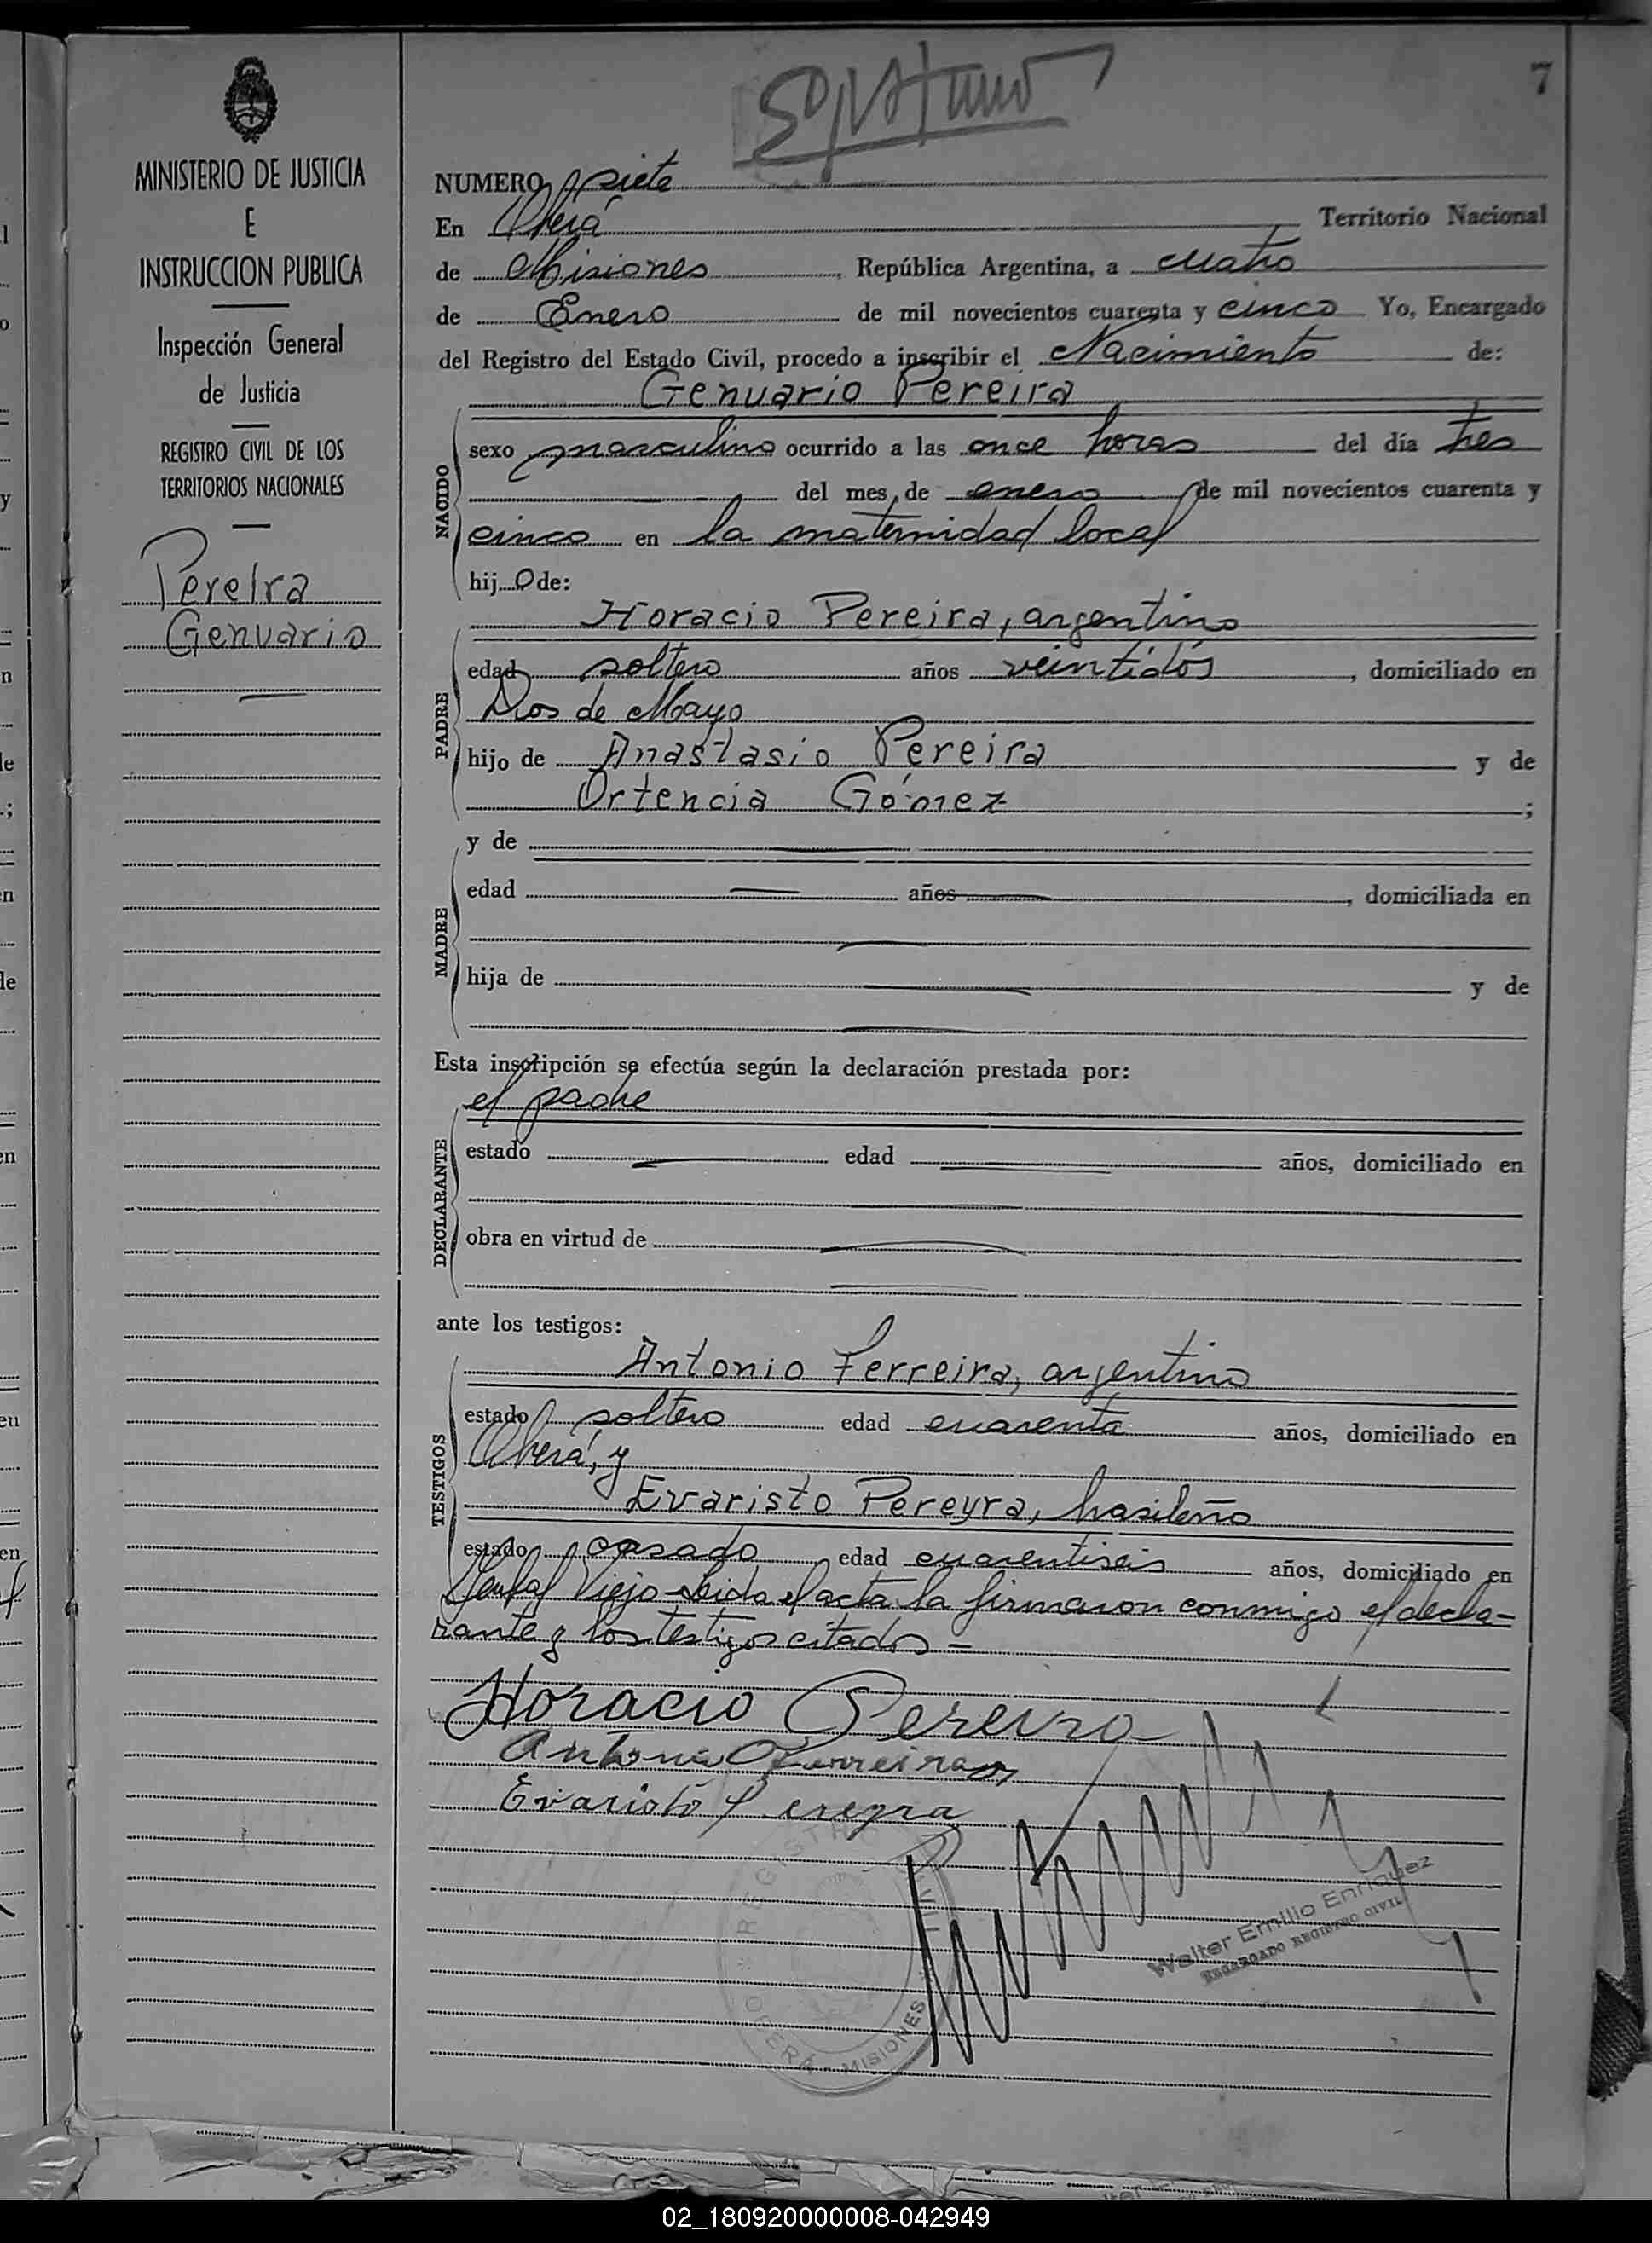 7
NUMERO siete
MINISTERIO DE JUSTICIA
E
INSTRUCCION PUBLICA
Inspección General
de Justicia
REGISTRO CIVIL DE LOS
TERRITORIOS NACIONALES
Pereira
Genuario
En Oberá Territorio Nacional
de Misiones, República Argentina, a cuatro
de Enero de mil novecientos cuarenta y cinco Yo, Encargado
del Registro del Estado Civil, procedo a inscribir el Nacimiento de:
Genuario Pereira
NACIDO
sexo masculino ocurrido a las once horas del día tres
del mes de enero de mil novecientos cuarenta y
cinco en la maternidad local
hijo de:
Horacio Pereira, argentino
PADRE
edad soltero años veintidós, domiciliado en
Dos de Mayo
hijo de Anastasio Pereira y de
Ortencia Gómez;
y de
MADRE
edad años, domiciliada en
hija de y de
Esta inscripción se efectúa según la declaración prestada por:
el padre
DECLARANTE
estado edad años, domiciliado en
obra en virtud de
ante los testigos:
Antonio Ferreira, argentino
TESTIGOS
estado soltero edad cuarenta años, domiciliado en
Oberá, y
Evaristo Pereyra, brasileño
estado casado edad cuarentiseis años, domiciliado en
Viejo - Leida el acta la firmaron conmigo el decla-
rante y los testigos citados -
Horacio Pereira
Antonio Ferreira
Evaristo Pereyra
REGISTRO CIVIL
OBERÁ - MISIONES
Walter Emilio Enriquez
ENCARGADO REGISTRO CIVIL
02_180920000008-042949